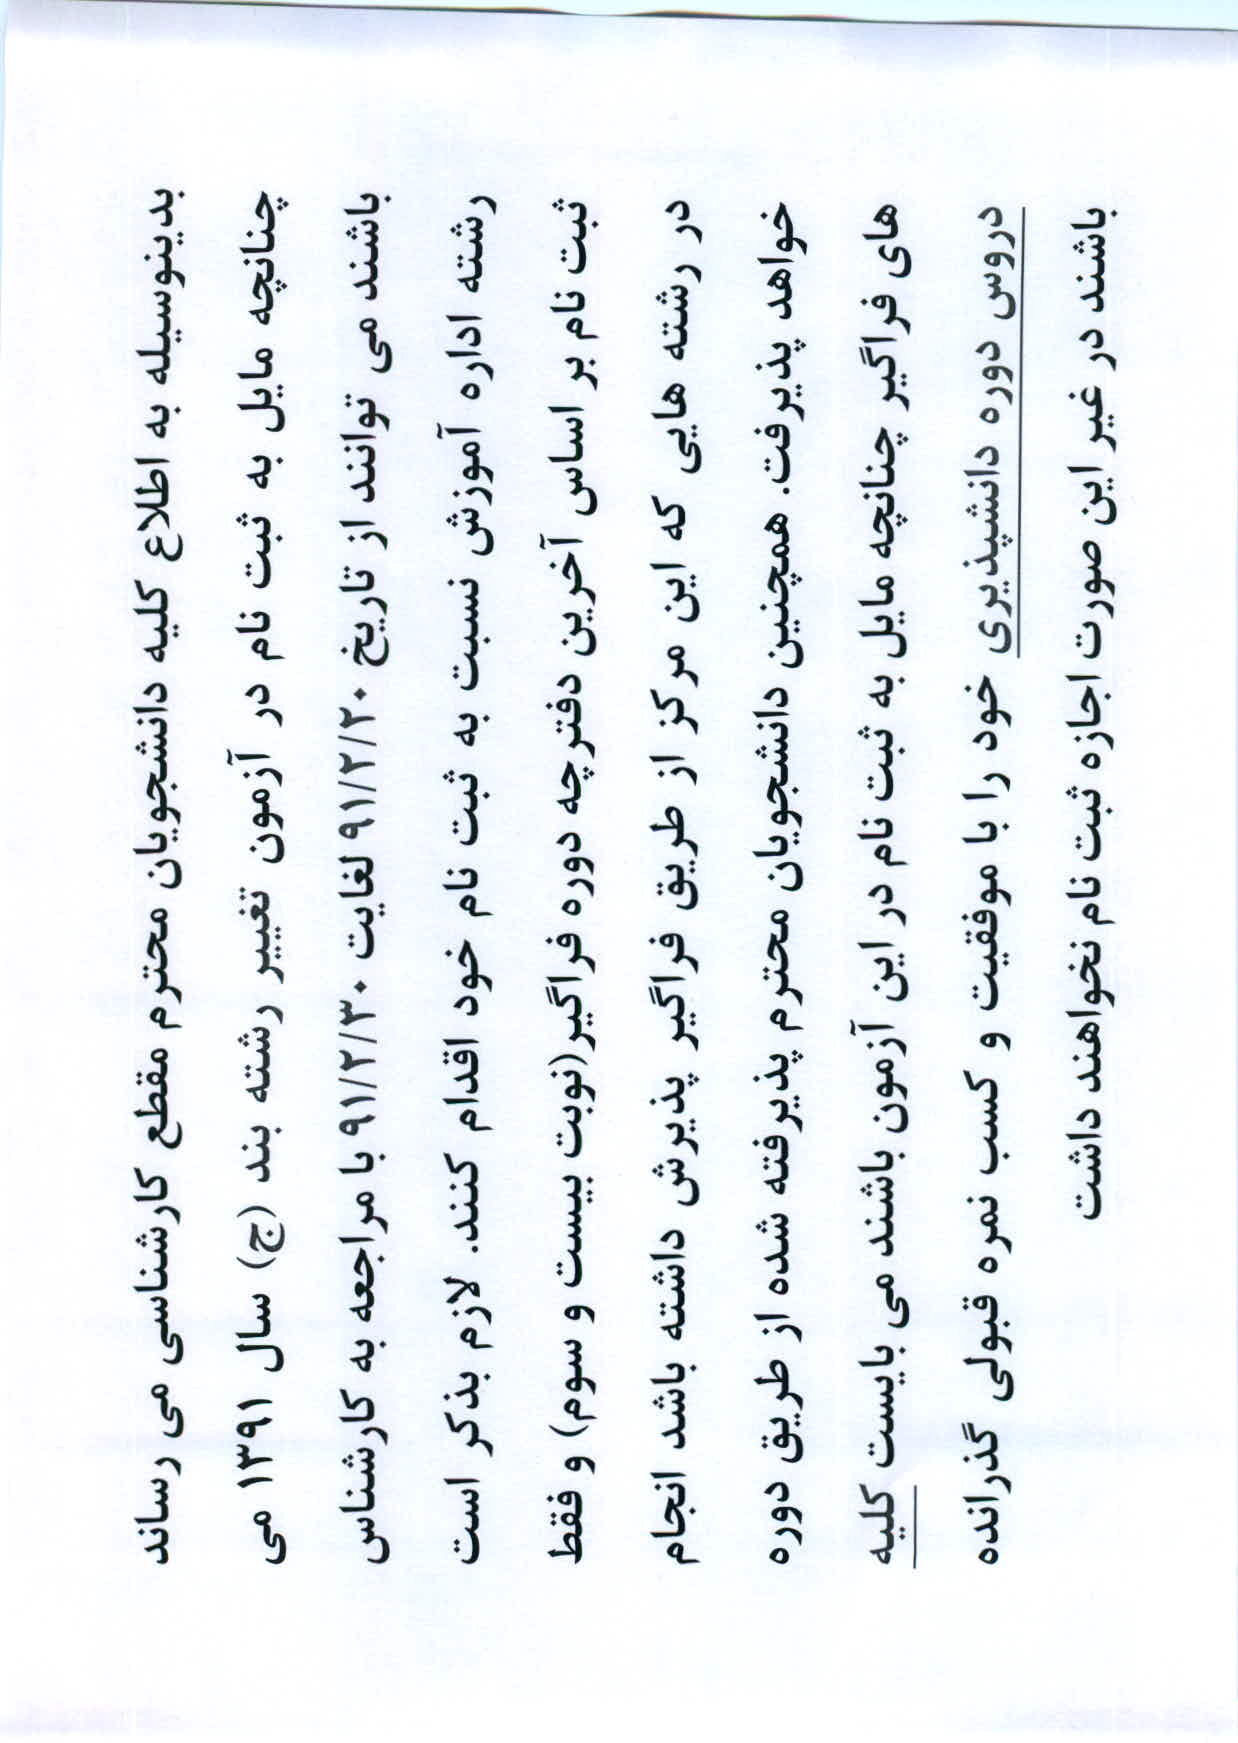 بدینوسیله به اطلاع کلیه دانشجویان محترم مقطع کارشناسی می رساند
چنانچه مایل به ثبت نام در آزمون تغییر رشته بند (ج) سال ۱۳۹۱ می
باشند می توانند از تاریخ ۹۱/۲/۲۰ لغایت ۹۱/۲/۳۰ با مراجعه به کارشناس
رشته اداره آموزش نسبت به ثبت نام خود اقدام کنند. لازم بذکر است
ثبت نام بر اساس آخرین دفترچه دوره فراگیر(نوبت بیست و سوم) و فقط
در رشته هایی که این مرکز از طریق فراگیر پذیرش داشته باشد انجام
خواهد پذیرفت. همچنین دانشجویان محترم پذیرفته شده از طریق دوره
های فراگیر چنانچه مایل به ثبت نام در این آزمون باشند می بایست کلیه
دروس دوره دانشپذیری خود را با موفقیت و کسب نمره قبولی گذرانده
باشند در غیر این صورت اجازه ثبت نام نخواهند داشت